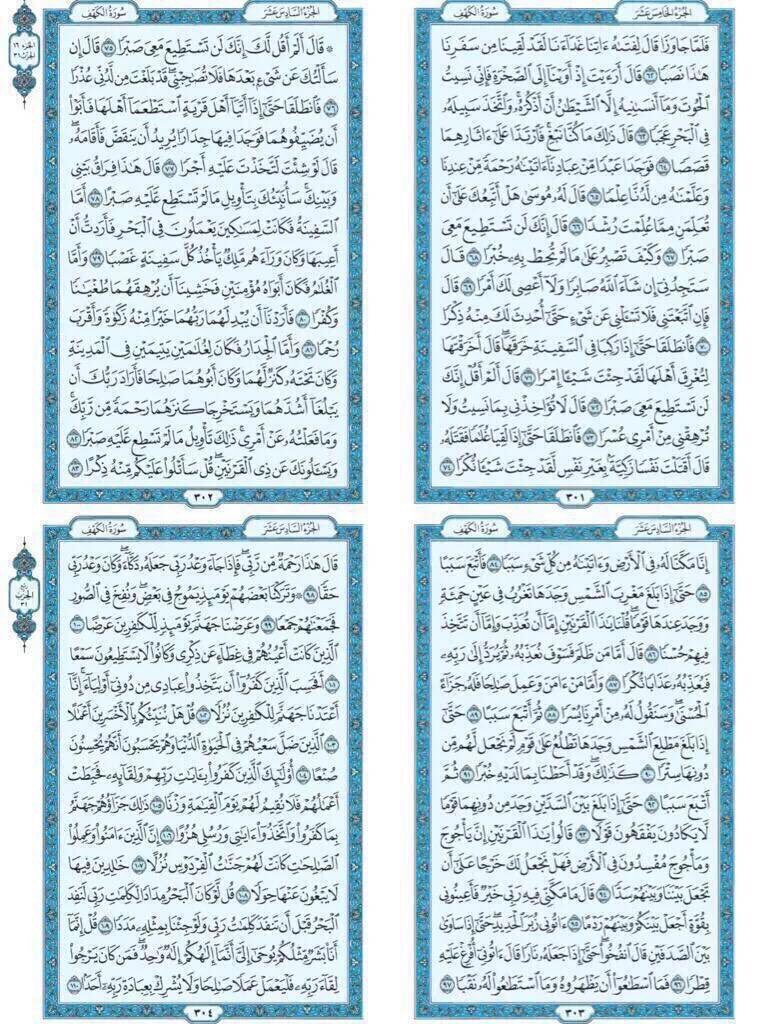 الجُزْءُ الخَامِسَ عَشَرَ
سُورَةُ الكَهْفِ
فَلَمَّا جَاوَزَا قَالَ لِفَتَىٰهُ ءَاتِنَا غَدَآءَنَا لَقَدْ لَقِينَا مِن سَفَرِنَا
هَٰذَا نَصَبًا ٦٢ قَالَ أَرَءَيْتَ إِذْ أَوَيْنَآ إِلَى ٱلصَّخْرَةِ فَإِنِّي نَسِيتُ
ٱلْحُوتَ وَمَآ أَنسَىٰنِيهُ إِلَّا ٱلشَّيْطَٰنُ أَنْ أَذْكُرَهُۥۚ وَٱتَّخَذَ سَبِيلَهُۥ
فِي ٱلْبَحْرِ عَجَبًا ٦٣ قَالَ ذَٰلِكَ مَا كُنَّا نَبْغِۚ فَٱرْتَدَّا عَلَىٰٓ ءَاثَارِهِمَا
قَصَصًا ٦٤ فَوَجَدَا عَبْدًا مِّنْ عِبَادِنَآ ءَاتَيْنَٰهُ رَحْمَةً مِّنْ عِندِنَا
وَعَلَّمْنَٰهُ مِن لَّدُنَّا عِلْمًا ٦٥ قَالَ لَهُۥ مُوسَىٰ هَلْ أَتَّبِعُكَ عَلَىٰٓ أَن
تُعَلِّمَنِ مِمَّا عُلِّمْتَ رُشْدًا ٦٦ قَالَ إِنَّكَ لَن تَسْتَطِيعَ مَعِيَ
صَبْرًا ٦٧ وَكَيْفَ تَصْبِرُ عَلَىٰ مَا لَمْ تُحِطْ بِهِۦ خُبْرًا ٦٨ قَالَ
سَتَجِدُنِيٓ إِن شَآءَ ٱللَّهُ صَابِرًا وَلَآ أَعْصِي لَكَ أَمْرًا ٦٩ قَالَ
فَإِنِ ٱتَّبَعْتَنِي فَلَا تَسْـَٔلْنِي عَن شَيْءٍ حَتَّىٰٓ أُحْدِثَ لَكَ مِنْهُ ذِكْرًا
٧٠ فَٱنطَلَقَا حَتَّىٰٓ إِذَا رَكِبَا فِي ٱلسَّفِينَةِ خَرَقَهَاۖ قَالَ أَخَرَقْتَهَا
لِتُغْرِقَ أَهْلَهَا لَقَدْ جِئْتَ شَيْـًٔا إِمْرًا ٧١ قَالَ أَلَمْ أَقُلْ إِنَّكَ
لَن تَسْتَطِيعَ مَعِيَ صَبْرًا ٧٢ قَالَ لَا تُؤَاخِذْنِي بِمَا نَسِيتُ وَلَا
تُرْهِقْنِي مِنْ أَمْرِي عُسْرًا ٧٣ فَٱنطَلَقَا حَتَّىٰٓ إِذَا لَقِيَا غُلَٰمًا فَقَتَلَهُۥ
قَالَ أَقَتَلْتَ نَفْسًا زَكِيَّةًۢ بِغَيْرِ نَفْسٍ لَّقَدْ جِئْتَ شَيْـًٔا نُّكْرًا ٧٤
٣٠١
الجُزْءُ السَّادِسَ عَشَرَ
سُورَةُ الكَهْفِ
الجزء ١٦
الحزب ٣١
۞ قَالَ أَلَمْ أَقُل لَّكَ إِنَّكَ لَن تَسْتَطِيعَ مَعِيَ صَبْرًا ٧٥ قَالَ إِن
سَأَلْتُكَ عَن شَيْءٍۭ بَعْدَهَا فَلَا تُصَٰحِبْنِيۖ قَدْ بَلَغْتَ مِن لَّدُنِّي عُذْرًا
٧٦ فَٱنطَلَقَا حَتَّىٰٓ إِذَآ أَتَيَآ أَهْلَ قَرْيَةٍ ٱسْتَطْعَمَآ أَهْلَهَا فَأَبَوْا۟
أَن يُضَيِّفُوهُمَا فَوَجَدَا فِيهَا جِدَارًا يُرِيدُ أَن يَنقَضَّ فَأَقَامَهُۥۖ
قَالَ لَوْ شِئْتَ لَتَّخَذْتَ عَلَيْهِ أَجْرًا ٧٧ قَالَ هَٰذَا فِرَاقُ بَيْنِي
وَبَيْنِكَۚ سَأُنَبِّئُكَ بِتَأْوِيلِ مَا لَمْ تَسْتَطِع عَّلَيْهِ صَبْرًا ٧٨ أَمَّا
ٱلسَّفِينَةُ فَكَانَتْ لِمَسَٰكِينَ يَعْمَلُونَ فِي ٱلْبَحْرِ فَأَرَدتُّ أَنْ
أَعِيبَهَا وَكَانَ وَرَآءَهُم مَّلِكٌ يَأْخُذُ كُلَّ سَفِينَةٍ غَصْبًا ٧٩ وَأَمَّا
ٱلْغُلَٰمُ فَكَانَ أَبَوَاهُ مُؤْمِنَيْنِ فَخَشِينَآ أَن يُرْهِقَهُمَا طُغْيَٰنًا
وَكُفْرًا ٨٠ فَأَرَدْنَآ أَن يُبْدِلَهُمَا رَبُّهُمَا خَيْرًا مِّنْهُ زَكَوٰةً وَأَقْرَبَ
رُحْمًا ٨١ وَأَمَّا ٱلْجِدَارُ فَكَانَ لِغُلَٰمَيْنِ يَتِيمَيْنِ فِي ٱلْمَدِينَةِ
وَكَانَ تَحْتَهُۥ كَنزٌ لَّهُمَا وَكَانَ أَبُوهُمَا صَٰلِحًا فَأَرَادَ رَبُّكَ أَن
يَبْلُغَآ أَشُدَّهُمَا وَيَسْتَخْرِجَا كَنزَهُمَا رَحْمَةً مِّن رَّبِّكَۚ
وَمَا فَعَلْتُهُۥ عَنْ أَمْرِيۚ ذَٰلِكَ تَأْوِيلُ مَا لَمْ تَسْطِع عَّلَيْهِ صَبْرًا ٨٢
وَيَسْـَٔلُونَكَ عَن ذِي ٱلْقَرْنَيْنِۖ قُلْ سَأَتْلُوا۟ عَلَيْكُم مِّنْهُ ذِكْرًا ٨٣
٣٠٢
الجُزْءُ السَّادِسَ عَشَرَ
سُورَةُ الكَهْفِ
إِنَّا مَكَّنَّا لَهُۥ فِي ٱلْأَرْضِ وَءَاتَيْنَٰهُ مِن كُلِّ شَيْءٍ سَبَبًا ٨٤ فَأَتْبَعَ سَبَبًا
٨٥ حَتَّىٰٓ إِذَا بَلَغَ مَغْرِبَ ٱلشَّمْسِ وَجَدَهَا تَغْرُبُ فِي عَيْنٍ حَمِئَةٍ
وَوَجَدَ عِندَهَا قَوْمًاۗ قُلْنَا يَٰذَا ٱلْقَرْنَيْنِ إِمَّآ أَن تُعَذِّبَ وَإِمَّآ أَن تَتَّخِذَ
فِيهِمْ حُسْنًا ٨٦ قَالَ أَمَّا مَن ظَلَمَ فَسَوْفَ نُعَذِّبُهُۥ ثُمَّ يُرَدُّ إِلَىٰ رَبِّهِۦ
فَيُعَذِّبُهُۥ عَذَابًا نُّكْرًا ٨٧ وَأَمَّا مَنْ ءَامَنَ وَعَمِلَ صَٰلِحًا فَلَهُۥ جَزَآءً
ٱلْحُسْنَىٰۖ وَسَنَقُولُ لَهُۥ مِنْ أَمْرِنَا يُسْرًا ٨٨ ثُمَّ أَتْبَعَ سَبَبًا ٨٩ حَتَّىٰٓ
إِذَا بَلَغَ مَطْلِعَ ٱلشَّمْسِ وَجَدَهَا تَطْلُعُ عَلَىٰ قَوْمٍ لَّمْ نَجْعَل لَّهُم مِّن
دُونِهَا سِتْرًا ٩٠ كَذَٰلِكَۖ وَقَدْ أَحَطْنَا بِمَا لَدَيْهِ خُبْرًا ٩١ ثُمَّ
أَتْبَعَ سَبَبًا ٩٢ حَتَّىٰٓ إِذَا بَلَغَ بَيْنَ ٱلسَّدَّيْنِ وَجَدَ مِن دُونِهِمَا قَوْمًا
لَّا يَكَادُونَ يَفْقَهُونَ قَوْلًا ٩٣ قَالُوا۟ يَٰذَا ٱلْقَرْنَيْنِ إِنَّ يَأْجُوجَ
وَمَأْجُوجَ مُفْسِدُونَ فِي ٱلْأَرْضِ فَهَلْ نَجْعَلُ لَكَ خَرْجًا عَلَىٰٓ أَن
تَجْعَلَ بَيْنَنَا وَبَيْنَهُمْ سَدًّا ٩٤ قَالَ مَا مَكَّنِّي فِيهِ رَبِّي خَيْرٌ فَأَعِينُونِي
بِقُوَّةٍ أَجْعَلْ بَيْنَكُمْ وَبَيْنَهُمْ رَدْمًا ٩٥ ءَاتُونِي زُبَرَ ٱلْحَدِيدِۖ حَتَّىٰٓ إِذَا سَاوَىٰ
بَيْنَ ٱلصَّدَفَيْنِ قَالَ ٱنفُخُوا۟ۖ حَتَّىٰٓ إِذَا جَعَلَهُۥ نَارًا قَالَ ءَاتُونِيٓ أُفْرِغْ عَلَيْهِ
قِطْرًا ٩٦ فَمَا ٱسْطَٰعُوٓا۟ أَن يَظْهَرُوهُ وَمَا ٱسْتَطَٰعُوا۟ لَهُۥ نَقْبًا ٩٧
٣٠٣
الجُزْءُ السَّادِسَ عَشَرَ
سُورَةُ الكَهْفِ
ربع
الحزب
٣١
قَالَ هَٰذَا رَحْمَةٌ مِّن رَّبِّيۖ فَإِذَا جَآءَ وَعْدُ رَبِّي جَعَلَهُۥ دَكَّآءَۖ وَكَانَ وَعْدُ رَبِّي
حَقًّا ٩٨ ۞ وَتَرَكْنَا بَعْضَهُمْ يَوْمَئِذٍ يَمُوجُ فِي بَعْضٍۖ وَنُفِخَ فِي ٱلصُّورِ
فَجَمَعْنَٰهُمْ جَمْعًا ٩٩ وَعَرَضْنَا جَهَنَّمَ يَوْمَئِذٍ لِّلْكَٰفِرِينَ عَرْضًا ١٠٠
ٱلَّذِينَ كَانَتْ أَعْيُنُهُمْ فِي غِطَآءٍ عَن ذِكْرِي وَكَانُوا۟ لَا يَسْتَطِيعُونَ سَمْعًا
١٠١ أَفَحَسِبَ ٱلَّذِينَ كَفَرُوٓا۟ أَن يَتَّخِذُوا۟ عِبَادِي مِن دُونِيٓ أَوْلِيَآءَۚ إِنَّآ
أَعْتَدْنَا جَهَنَّمَ لِلْكَٰفِرِينَ نُزُلًا ١٠٢ قُلْ هَلْ نُنَبِّئُكُم بِٱلْأَخْسَرِينَ أَعْمَٰلًا
١٠٣ ٱلَّذِينَ ضَلَّ سَعْيُهُمْ فِي ٱلْحَيَوٰةِ ٱلدُّنْيَا وَهُمْ يَحْسَبُونَ أَنَّهُمْ يُحْسِنُونَ
صُنْعًا ١٠٤ أُو۟لَٰٓئِكَ ٱلَّذِينَ كَفَرُوا۟ بِـَٔايَٰتِ رَبِّهِمْ وَلِقَآئِهِۦ فَحَبِطَتْ
أَعْمَٰلُهُمْ فَلَا نُقِيمُ لَهُمْ يَوْمَ ٱلْقِيَٰمَةِ وَزْنًا ١٠٥ ذَٰلِكَ جَزَآؤُهُمْ جَهَنَّمُ
بِمَا كَفَرُوا۟ وَٱتَّخَذُوٓا۟ ءَايَٰتِي وَرُسُلِي هُزُوًا ١٠٦ إِنَّ ٱلَّذِينَ ءَامَنُوا۟ وَعَمِلُوا۟
ٱلصَّٰلِحَٰتِ كَانَتْ لَهُمْ جَنَّٰتُ ٱلْفِرْدَوْسِ نُزُلًا ١٠٧ خَٰلِدِينَ فِيهَا
لَا يَبْغُونَ عَنْهَا حِوَلًا ١٠٨ قُل لَّوْ كَانَ ٱلْبَحْرُ مِدَادًا لِّكَلِمَٰتِ رَبِّي لَنَفِدَ
ٱلْبَحْرُ قَبْلَ أَن تَنفَدَ كَلِمَٰتُ رَبِّي وَلَوْ جِئْنَا بِمِثْلِهِۦ مَدَدًا ١٠٩ قُلْ إِنَّمَآ
أَنَا۠ بَشَرٌ مِّثْلُكُمْ يُوحَىٰٓ إِلَيَّ أَنَّمَآ إِلَٰهُكُمْ إِلَٰهٌ وَٰحِدٌۖ فَمَن كَانَ يَرْجُوا۟
لِقَآءَ رَبِّهِۦ فَلْيَعْمَلْ عَمَلًا صَٰلِحًا وَلَا يُشْرِكْ بِعِبَادَةِ رَبِّهِۦٓ أَحَدًۢا ١١٠
٣٠٤